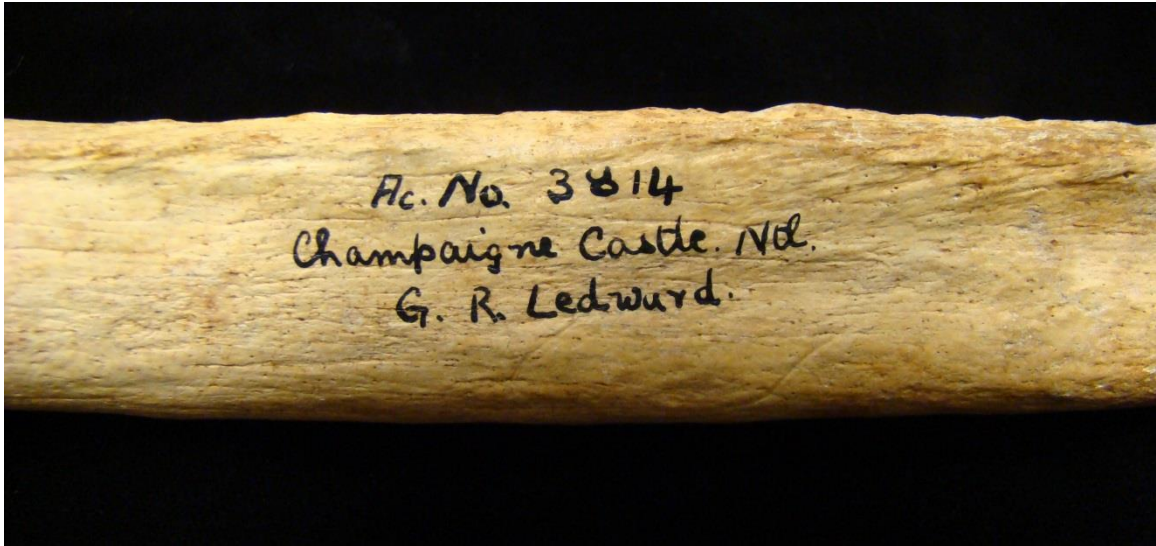 Ac. No. 3814
Champaigne Castle. Ntl.
G. R. Ledwurd.